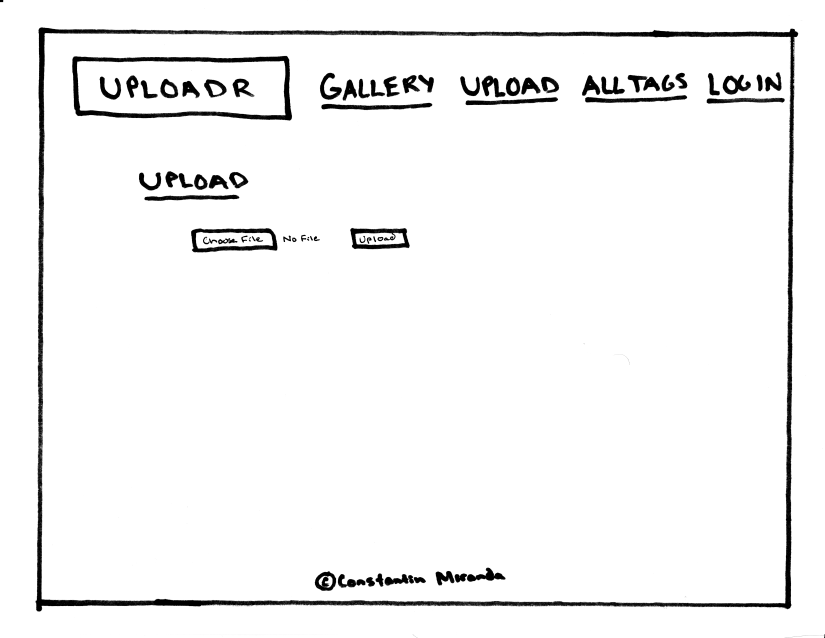 UPLOADR GALLERY UPLOAD ALL TAGS LOGIN
UPLOAD
Choose File No File Upload
© Constantin Miranda